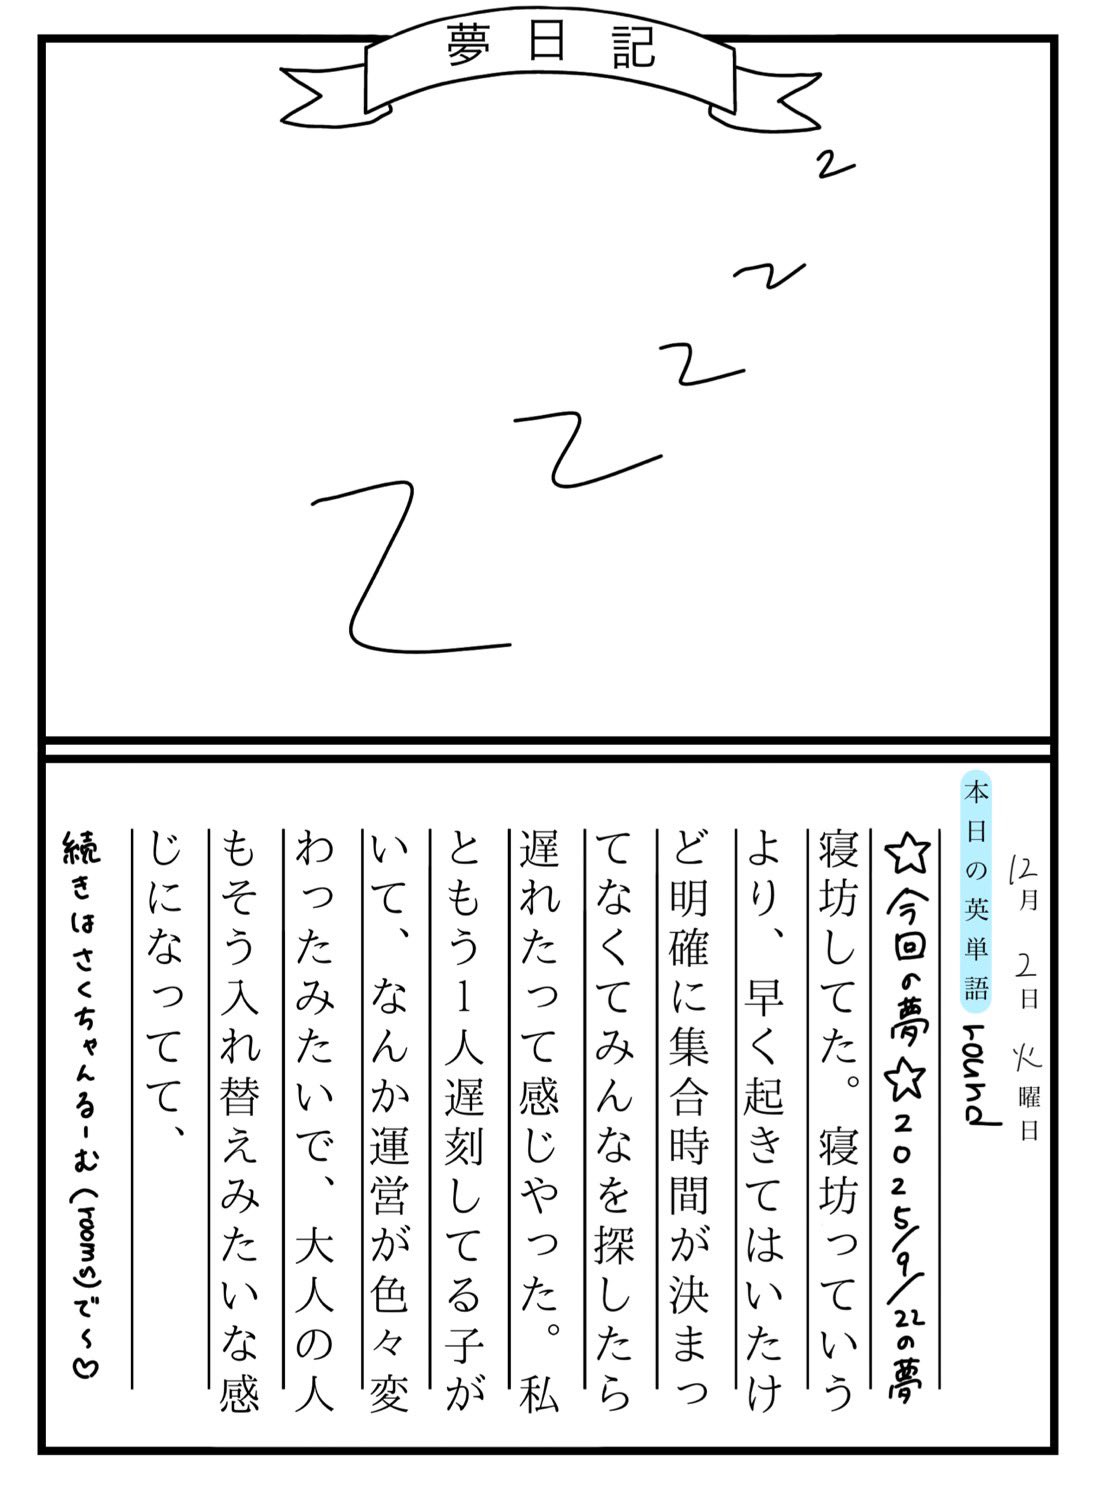 夢日記
z
z
z
z
z
12月 2日 火曜日
本日の英単語 round
☆今回の夢☆2025/9/22の夢
寝坊してた。寝坊っていう
より、早く起きてはいたけ
ど明確に集合時間が決まっ
てなくてみんなを探したら
遅れたって感じやった。私
ともう1人遅刻してる子が
いて、なんか運営が色々変
わったみたいで、大人の人
もそう入れ替えみたいな感
じになってて、
続きはさくちゃんるーむ(rooms)で〜♡